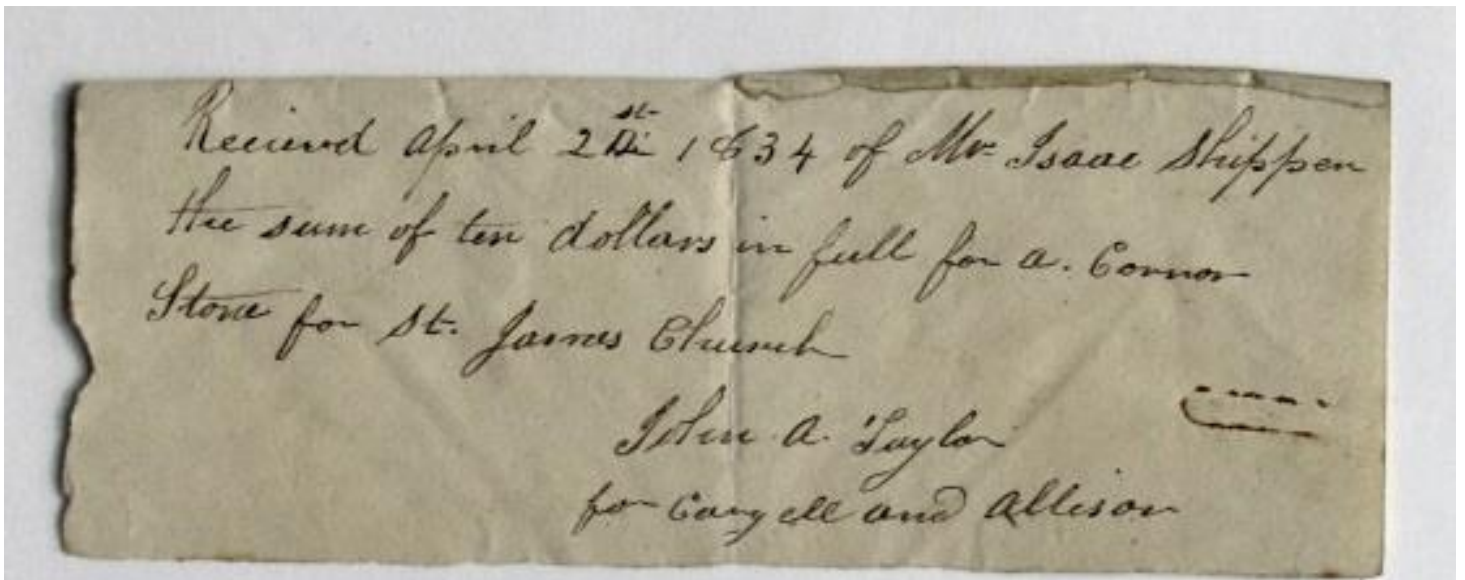 Recieved April 2 st 1834 of Mr Isaac Shippen
the sum of ten dollars in full for a. Connor
Stone for St. James Church
John A. Taylor
for and Allison